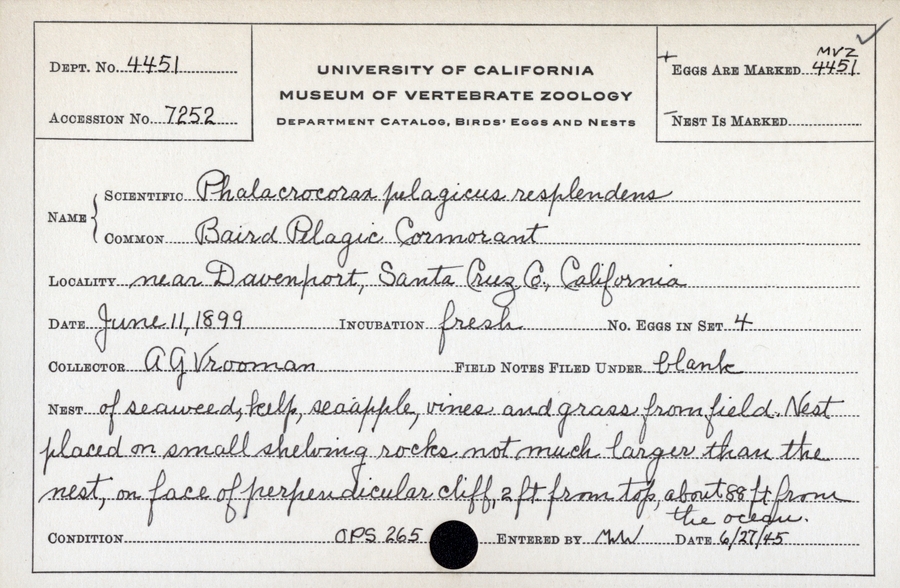 DEPT. No. 4451
ACCESSION No. 7252
UNIVERSITY OF CALIFORNIA
MUSEUM OF VERTEBRATE ZOOLOGY
DEPARTMENT CATALOG, BIRDS' EGGS AND NESTS
MVZ
+ EGGS ARE MARKED 4451
- NEST IS MARKED
NAME
SCIENTIFIC Phalacrocorax pelagicus resplendens
COMMON Baird Pelagic Cormorant
LOCALITY near Davenport, Santa Cruz Co., California
DATE June 11, 1899 INCUBATION fresh No. EGGS IN SET 4
COLLECTOR A G Vrooman FIELD NOTES FILED UNDER blank
NEST of seaweed, kelp, seaapple, vines and grass from field. Nest
placed on small shelving rocks not much larger than the
nest, on face of perpendicular cliff, 2 ft from top, about 88 ft from
the ocean.
CONDITION OPS 265 ENTERED BY MW DATE 6/27/45